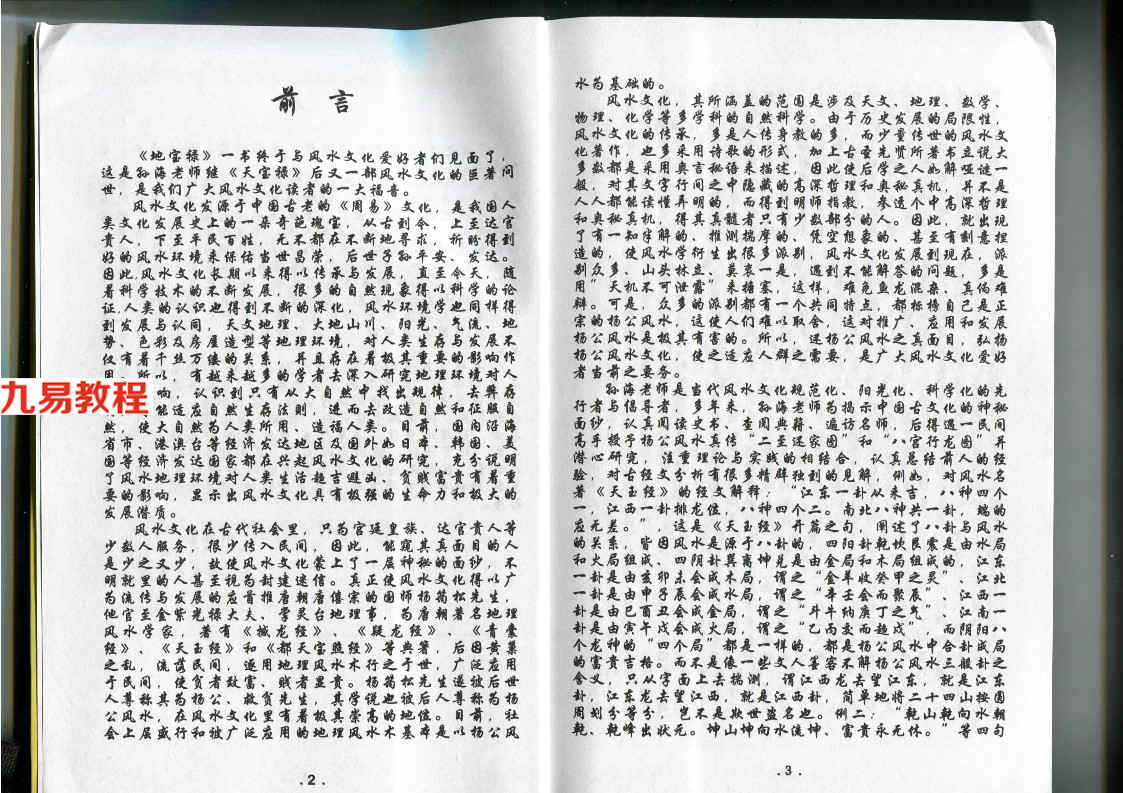 前 言
《地富禄》一书终于与风水文化爱好者们见面了，
这是孙海老师继《天富禄》后又一部风水文化的巨著问
世，是我们广大风水文化读者的一大福音。
风水文化发源于中国古老的《周易》文化，是我国人
类文化发展史上的一朵奇葩瑰宝，从古到今，上至达官
贵人，下至平民百姓，无不都在不断地寻求，祈盼得到
好的风水环境来保佑当世昌荣，后世子孙平安、发达。
因此，风水文化长期以来得以传承与发展，直至今天，随
着科学技术的不断发展，很多的自然现象得以科学的论
证，人类的认识也得到不断的深化，风水环境学也同样得
到发展与认同，天文地理、大地山川、阳光、气流、地
势、色彩及房屋造型等地理环境，对人类生存与发展不
仅有着千丝万缕的关系，并且存在着极其重要的影响作
用。所以，有越来越多的学者去深入研究地理环境对人
九易教程
响，认识到只有从大自然中找出规律，去弊存
能适应自然生存法则，进而去改造自然和征服自
然，使大自然为人类所用、造福人类。目前，国内沿海
省市、港澳台等经济发达地区及国外如日本、韩国、美
国等经济发达国家都在兴起风水文化的研究，充分说明
了风水地理环境对人类生活趋吉避凶、贫贱富贵有着重
要的影响，显示出风水文化具有极强的生命力和极大的
发展潜质。
风水文化在古代社会里，只为宫廷皇族、达官贵人等
少数人服务，很少传入民间，因此，能窥其真面目的人
是少之又少，故使风水文化蒙上了一层神秘的面纱，不
明就里的人甚至视为封建迷信。真正使风水文化得以广
为流传与发展的应首推唐朝唐僖宗的国师杨筠松先生，
他官至金紫光禄大夫、掌灵台地理事，为唐朝著名地理
风水学家，著有《撼龙经》、《疑龙经》、《青囊
经》、《天玉经》和《都天宝照经》等典著，后因黄巢
之乱，流落民间，遂用地理风水术行之于世，广泛应用
于民间，使贫者致富、贱者显贵。杨筠松先生遂被后世
人尊称其为杨公、救贫先生，其学说也被后人尊称为杨
公风水，在风水文化里有着极其崇高的地位。目前，社
会上层盛行和被广泛应用的地理风水术基本是以杨公风
.2.
水为基础的。
风水文化，其所涵盖的范围是涉及天文、地理、数学、
物理、化学等多学科的自然科学。由于历史发展的局限性，
风水文化的传承，多是人传身教的多，而少量传世的风水文
化著作，也多采用诗歌的形式，加上古圣先贤所著书立说大
多数都是采用奥言秘语来描述，因此使后学之人如解哑谜一
般，对其文字行间之中隐藏的高深哲理和奥秘真机，并不是
人人都能读懂弄明的，而得到明师指教，参透个中高深哲理
和奥秘真机，得其真髓者只有少数部分的人。因此，就出现
了有一知半解的、推测揣摩的、凭空想象的、甚至有刻意捏
造的，使风水学衍生出很多派别，风水文化发展到现在，派
别众多、山头林立、莫衷一是，遇到不能解答的问题，多是
用"天机不可泄露"来搪塞，这样，难免鱼龙混杂、真伪难
辩。可是，众多的派别都有一个共同特点，都标榜自己是正
宗的杨公风水，这使人们难以取舍，这对推广、应用和发展
杨公风水是极其有害的。所以，还杨公风水之真面目，弘扬
杨公风水文化，使之适应人群之需要，是广大风水文化爱好
者当前之要务。
孙海老师是当代风水文化规范化、阳光化、科学化的先
行者与倡导者，多年来，孙海老师为揭示中国古文化的神秘
面纱，认真阅读史书、查阅典籍、遍访名师，后得遇一民间
高手授予杨公风水真传"二至还家图"和"八宫行龙图"并
潜心研究，注重理论与实践的相结合，认真总结前人的经
验，对古经文分析有很多精辟独到的见解，例如，对风水名
著《天玉经》的经文解释："江东一卦从来吉，八神四个
一，江西一卦排龙位，八神四个二。南北八神共一卦，端的
应无差。"，这是《天玉经》开篇之句，阐述了八卦与风水
的关系，皆因风水是源于八卦的，四阳卦乾坎艮震是由水局
和火局组成、四阴卦巽离坤兑是由金局和木局组成的，江东
一卦是由亥卯未会成木局，谓之"金羊收癸甲之灵"、江北
一卦是由申子辰会成水局，谓之"辛壬会而聚辰"、江西一
卦是由巳酉丑会成金局，谓之"斗牛纳庚丁之气"、江南一
卦是由寅午戌会成火局，谓之"乙丙交而趋戌"，而阴阳八
个龙神的"四个局"都是一样的，都是杨公风水中合卦成局
的富贵吉格。而不是像一些文人墨客不解杨公风水三般卦之
含义，只从字面上去揣测，谓江西龙去望江东，就是江东
卦，江东龙去望江西，就是江西卦，简单地将二十四山按圆
周划分等分，岂不是欺世盗名也。例二："乾山乾向水朝
乾、乾峰出状元。坤山坤向水流坤、富贵永无休。"等四句
.3.